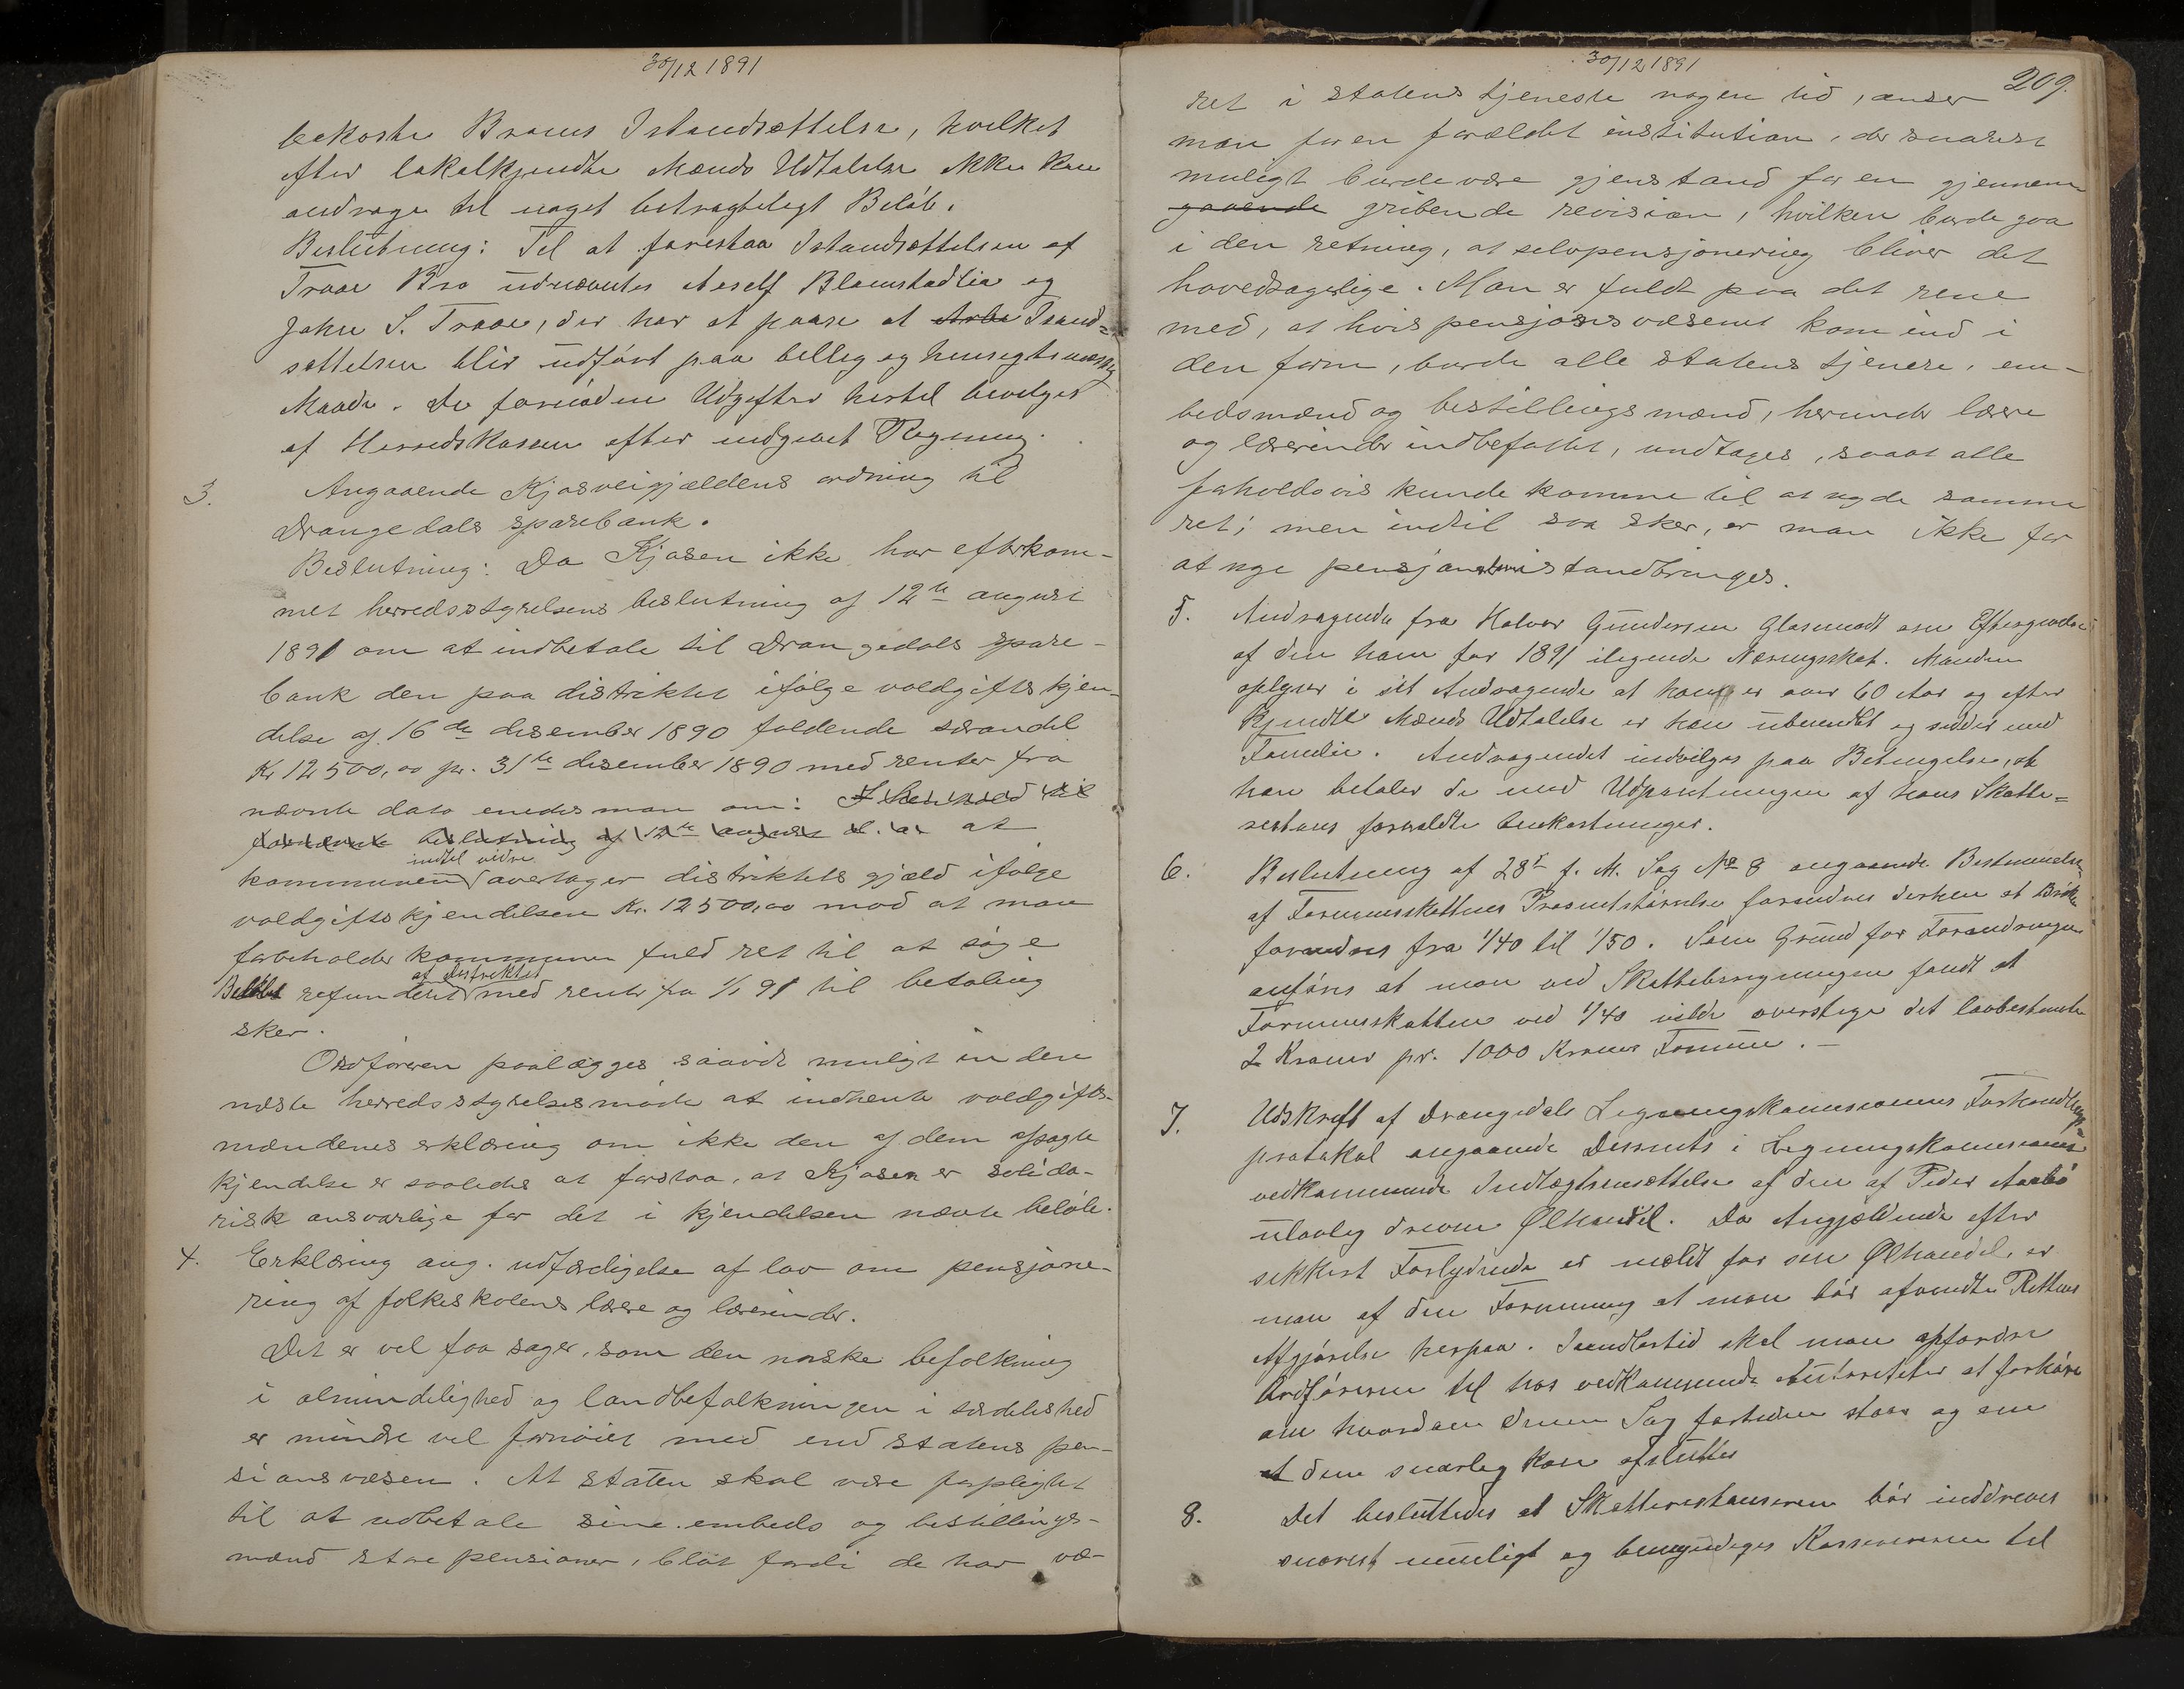 30/12 1891
bekoste Broens Istandsættelse, hvilket
efter lokalkjendte Mænds Udtalelse ikke kan
andrage til noget betragteligt Beløb.
Beslutning: Til at forestaa Istandsættelsen af
Traae Bro udnævntes Blomstadlia og
John S. Traae, der har at paase at Arbe Istand=
sættelsen blir udført paa billig og hensigtsmæssig
Maade. De fornødne Udgifter hertil bevilges
af Herredskassen efter indgivet Regning.
3. Angaaende Kjosveigjældens ordning til
Drangedals sparebank.
Beslutning: Da Kjosen ikke har efterkom-
met herredsstyrelsens beslutning af 12te august
1891 om at indbetale til Drangedals spare-
bank den paa distriktet ifølge voldgiftskjen-
delse af 16de desember 1890 faldende særandel
Kr 12500,00 pr. 31te desember 1890 med renter fra
nævnte dato enedes man om: I henhold til
fornævnte beslutning af 12te august d. a. at
kommunen indtil videre overtager distriktets gjæld ifølge
voldgiftskjendelsen Kr. 12500,00 mod at man
forbeholder kommunen fuld ret til at søge
Beløbet refunderet af distriktet med rente fra 1/1 91 til betaling
sker.
Ordføreren paalægges saavidt muligt inden
næste herredsstyrelsesmøde at indhente voldgifts-
mændenes erklæring om ikke den af dem afsagte
kjendelse er saaledes at forstaa, at Kjosen er solida-
risk ansvarlige for det i kjendelsen nævnte beløb.
4. Erklæring ang. udfærdigelse af lov om pensjone-
ring af folkeskolens lærere og lærerinder.
Det er vel faa sager, som den norske befolkning
i almindelighed og landbefolkningen i særdeleshed
er mindre vel fornøiet med end statens pen-
sionsvæsen. At staten skal være forpligtet
til at udbetale sine embeds og bestillings-
mænd store pensioner, blot fordi de har væ-
30/12 1891
209.
ret i statens tjeneste nogen tid, anser
man for en forældet institution, der snarest
muligt burde være gjenstand for en gjennem
gaaende gribende revision, hvilken burde gaa
i den retning, at selvpensjonering bliver det
hovedsagelige. Man er fuldt paa det rene
med, at hvis pensjonsvæsenet kom ind i
den form, burde alle statens tjenere, em-
bedsmænd og bestillingsmænd, herunder lærere
og lærerinder indbefattet, undtages, saaat alle
forholdsvis kunde komme til at nyde samme
ret; men indtil saa sker, er man ikke for
at nye pensjoner istandbringes.
5. Andragende fra Halvor Gundersen om Eftergivelse
af den ham for 1891 ilignede Næringsskat. Manden
oplyser i sit Andragende at han er over 60 Aar og efter
kjendte Mænds Udtalelse er han ubemidlet og sidder med
Familie. Andragendet indvilges paa Betingelse, at
han betaler de med Udpantningen af hans Skatte=
restans forvoldte Omkostninger.
6. Beslutning af 28de f. M. Sag No 8 angaaende Bestemmelse
af Formuesskattens Prosentstørrelse forandres derhen at Brøken
forandres fra 1/40 til 1/50. Som Grund for Forandringen
anføres at man ved Skatteberegningen fandt at
Formuesskatten ved 1/40 vilde overstige det lovbestemte
2 Kroner pr. 1000 Kroner Formue. –
7. Udskrift af Drangedals Ligningskommissions Forhandlings=
protokol angaaende Dissents i Ligningskommissionen
vedkommende Indtægtsansættelse af den af Peder Aasbø
ulovlig drevne Ølhandel. Da Angjældende efter
sikkert Forlydende er meldt for sin Ølhandel, er
man af den Formening at man bør afvendte Rettens
Afgjørelse herpaa. Imidlertid skal man opfordre
Ordføreren til hos vedkommende Autoriteter at forhøre
om hvordan denne Sag fortiden staar og om
at den snarlig kan afsluttes
8. Det besluttedes at Skatterestanserne bør inddrives
snarest muligt og bemyndiges Kassereren til